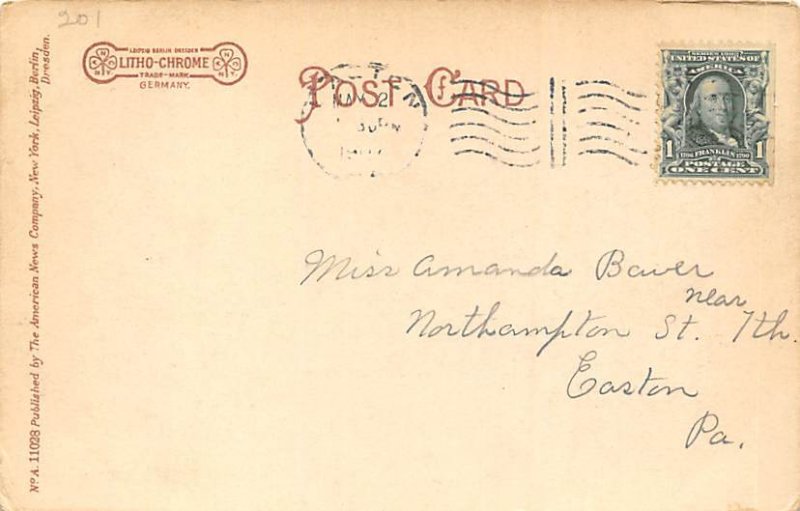 201
LEIPZIG BERLIN DRESDEN
LITHO-CHROME
TRADE-MARK
GERMANY.
POST CARD
MAY 2
SERIES 1902
UNITED STATES OF
AMERICA
1 1706 FRANKLIN 1790 1
POSTAGE
ONE CENT
Miss Amanda Bower
near
Northampton St. 7th.
Easton
Pa.
No A. 11028 Published by The American News Company, New York, Leipzig, Berlin,
Dresden.